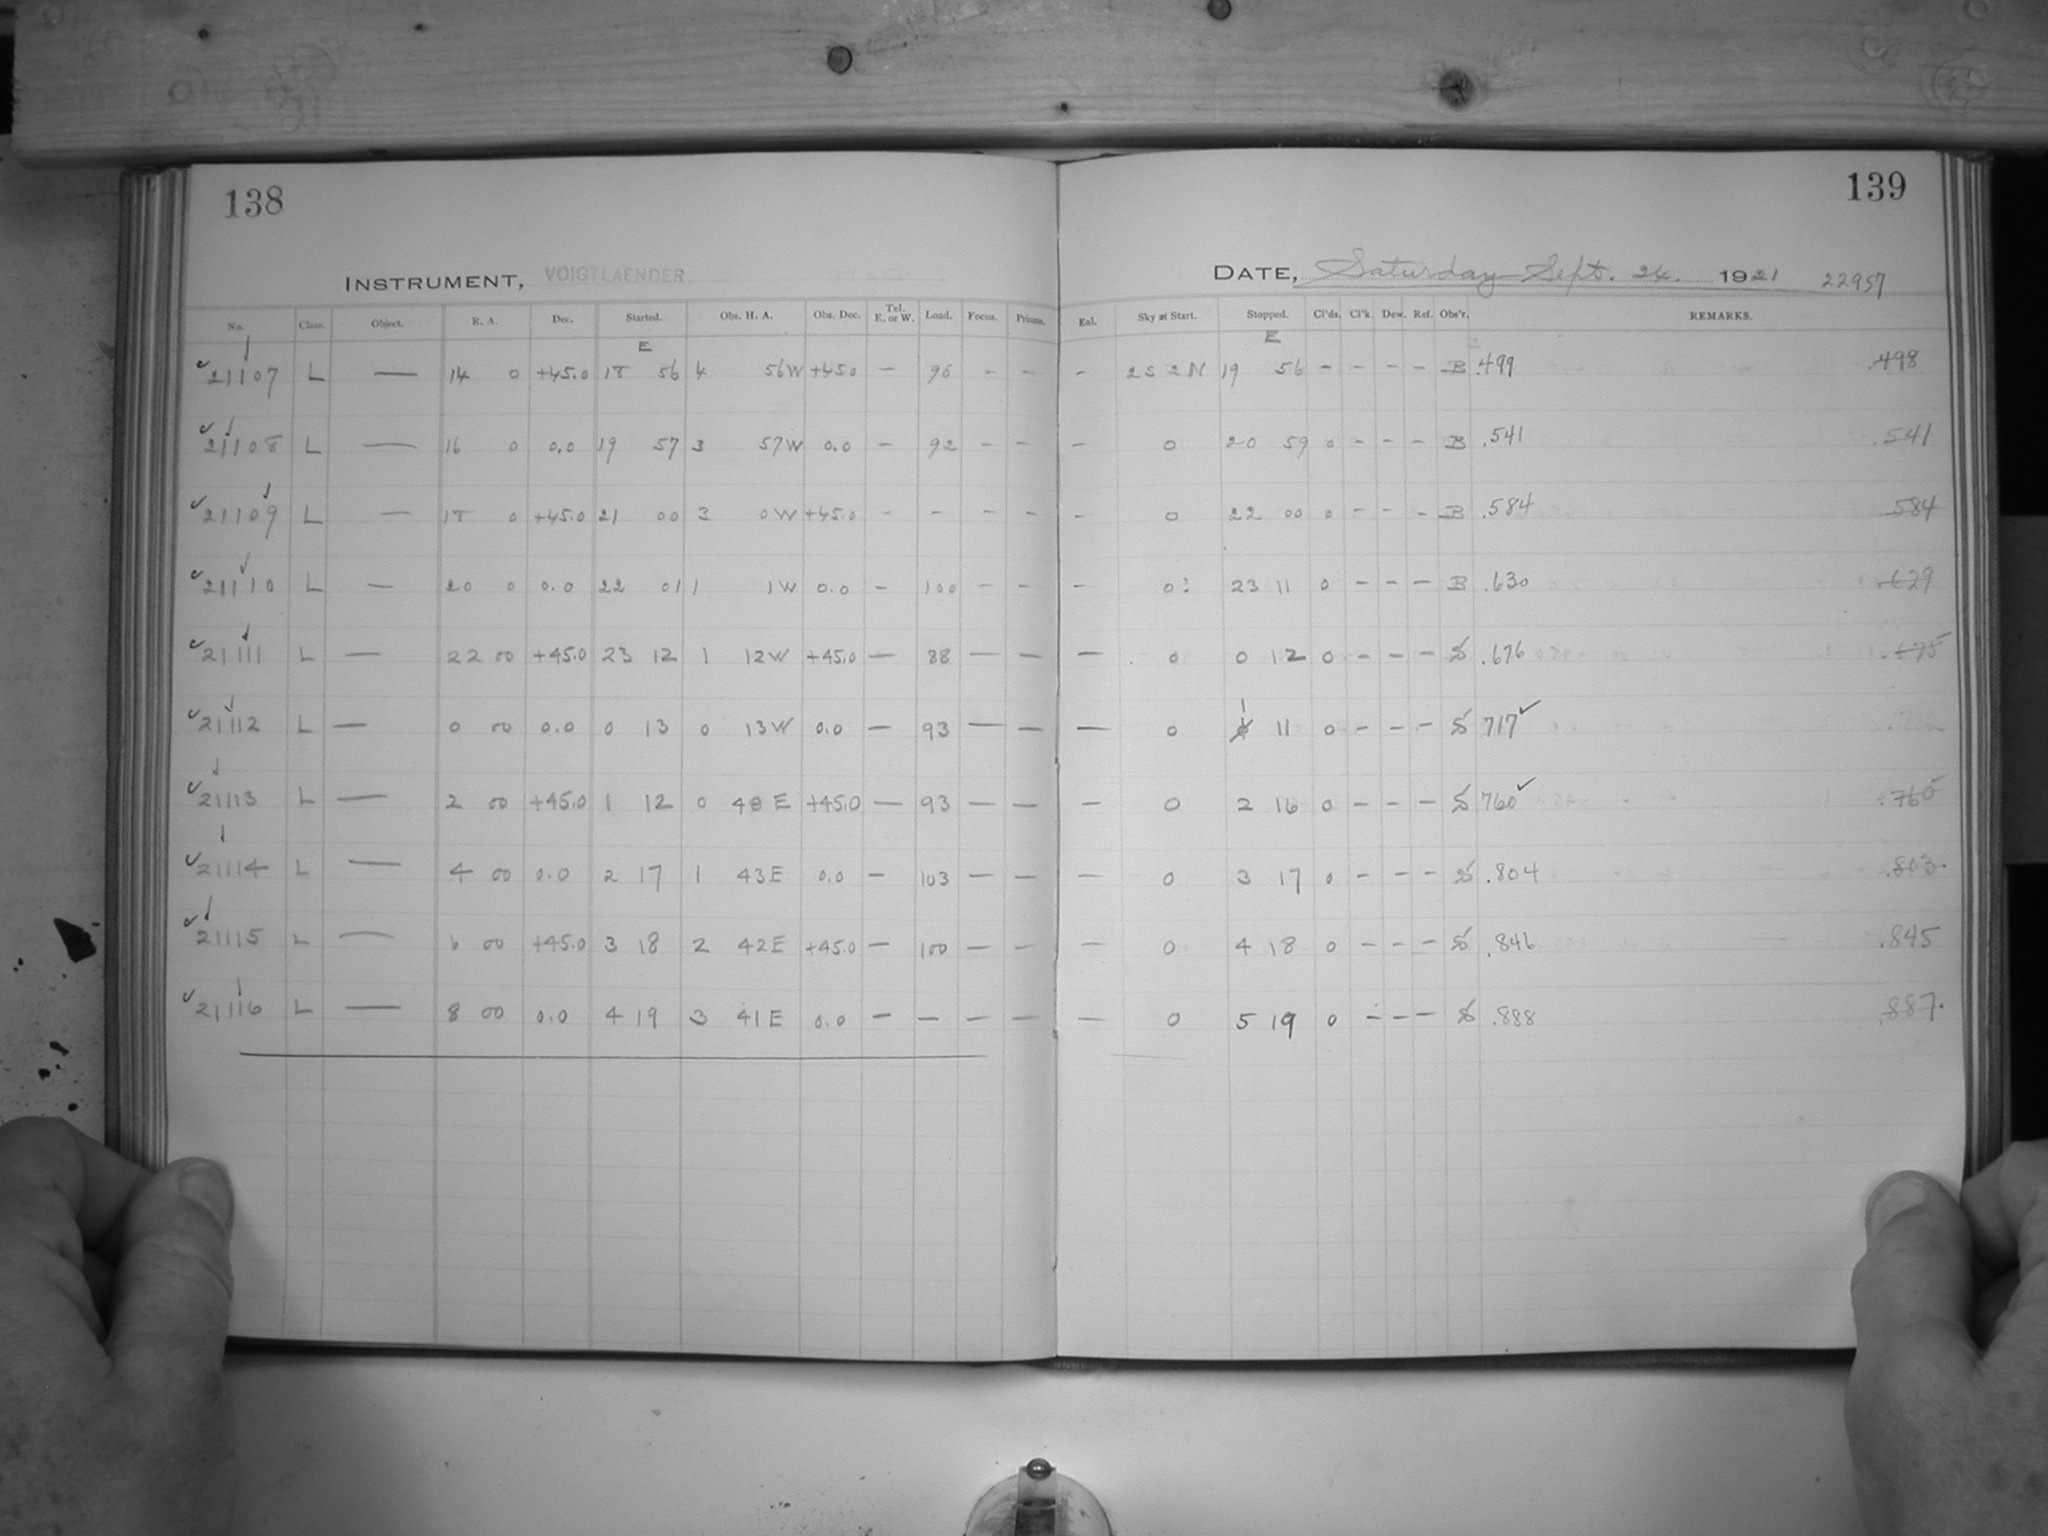 138
139
INSTRUMENT, VOIGTLAENDER
DATE, Saturday Sept. 24. 1921 22957
No. Class. Object. R. A. Dec. Started. Obs. H. A. Obs. Dec. Tel. E. or W. Load. Focus. Prisms. Enl. Sky at Start. Stopped. Cl'ds. Cl'k. Dew. Ref. Obs'r. REMARKS.
E E
21107 L — 14 0 +45.0 18 56 4 56W +45.0 — 96 – – – 2S 2N 19 56 – – – – B .499 .498
21108 L — 16 0 0.0 19 57 3 57W 0.0 – 92 – – – 0 20 59 0 – – – B .541 .541
21109 L — 18 0 +45.0 21 00 3 0W +45.0 – – – – – 0 22 00 0 – – – B .584 .584
21110 L — 20 0 0.0 22 01 1 1W 0.0 – 100 – – – 0: 23 11 0 – – – B .630 .629
21111 L — 22 00 +45.0 23 12 1 12W +45.0 — 88 — — — 0 0 12 0 – – – S .676 .675
21112 L — 0 00 0.0 0 13 0 13W 0.0 — 93 — — — 0 1 11 0 – – – S 717
21113 L — 2 00 +45.0 1 12 0 48E +45.0 — 93 — — — 0 2 16 0 – – – S 760 .760
21114 L — 4 00 0.0 2 17 1 43E 0.0 — 103 — — — 0 3 17 0 – – – S .804 .803
21115 L — 6 00 +45.0 3 18 2 42E +45.0 — 100 — — — 0 4 18 0 – – – S .846 .845
21116 L — 8 00 0.0 4 19 3 41E 0.0 — — — — — 0 5 19 0 – – – S .888 .887